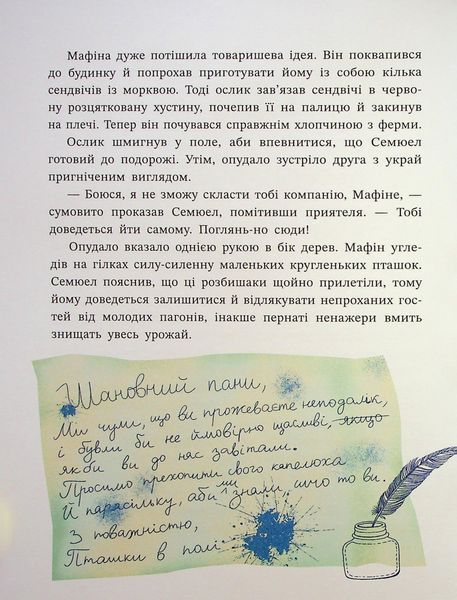 Мафіна дуже потішила товаришева ідея. Він поквапився
до будинку й попрохав приготувати йому із собою кілька
сендвічів із морквою. Тоді ослик зав'язав сендвічі в черво-
ну розцятковану хустину, почепив її на палицю й закинув
на плечі. Тепер він почувався справжнім хлопчиною з ферми.
Ослик шмигнув у поле, аби впевнитися, що Семюел
готовий до подорожі. Утім, опудало зустріло друга з украй
пригніченим виглядом.
— Боюся, я не зможу скласти тобі компанію, Мафіне, —
сумовито проказав Семюел, помітивши приятеля. — Тобі
доведеться йти самому. Поглянь-но сюди!
Опудало вказало однією рукою в бік дерев. Мафін угле-
дів на гілках силу-силенну маленьких кругленьких пташок.
Семюел пояснив, що ці розбишаки щойно прилетіли, тому
йому доведеться залишитися й відлякувати непроханих гос-
тей від молодих пагонів, інакше пернаті ненажери вмить
знищать увесь урожай.
Шановний пани,
Ми чули, що ви прожеваєте неподалік,
і були би не ймовірно щасливі, якщо
якби ви до нас завітали.
Просимо прехопити свого капелюха
й парасільку, аби ми знали, шчо то ви.
З поважністю,
Пташки в полі